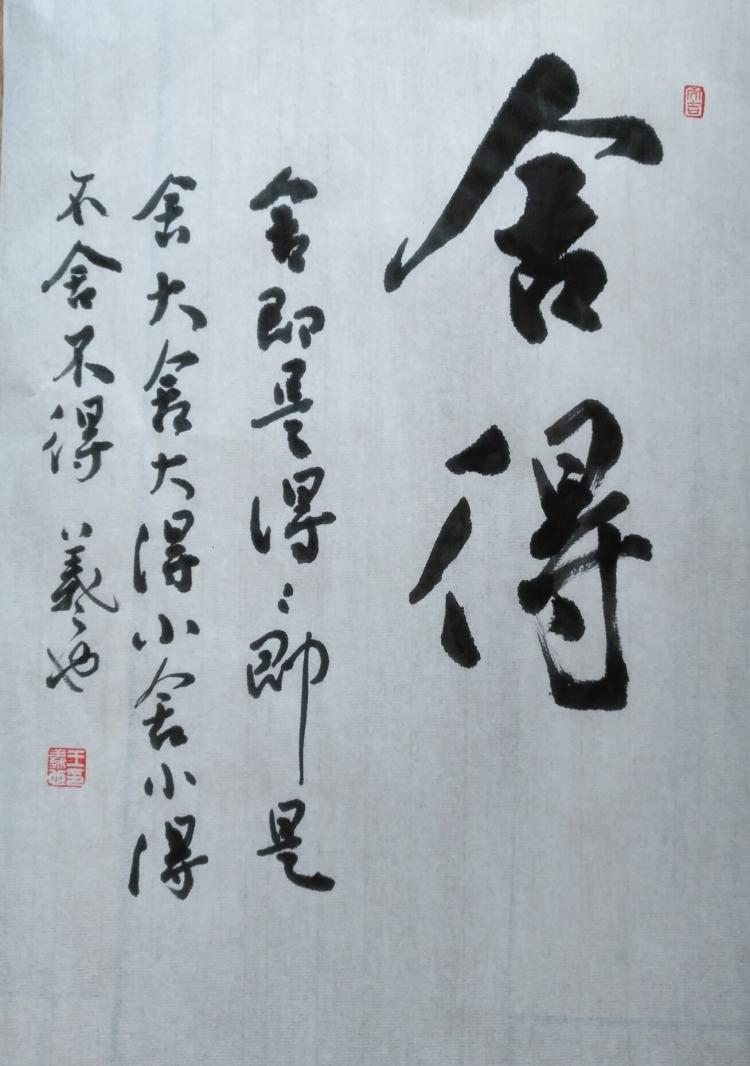 舍得
舍即是得〻即是
舍大舍大得小舍小得
不舍不得 羲之也